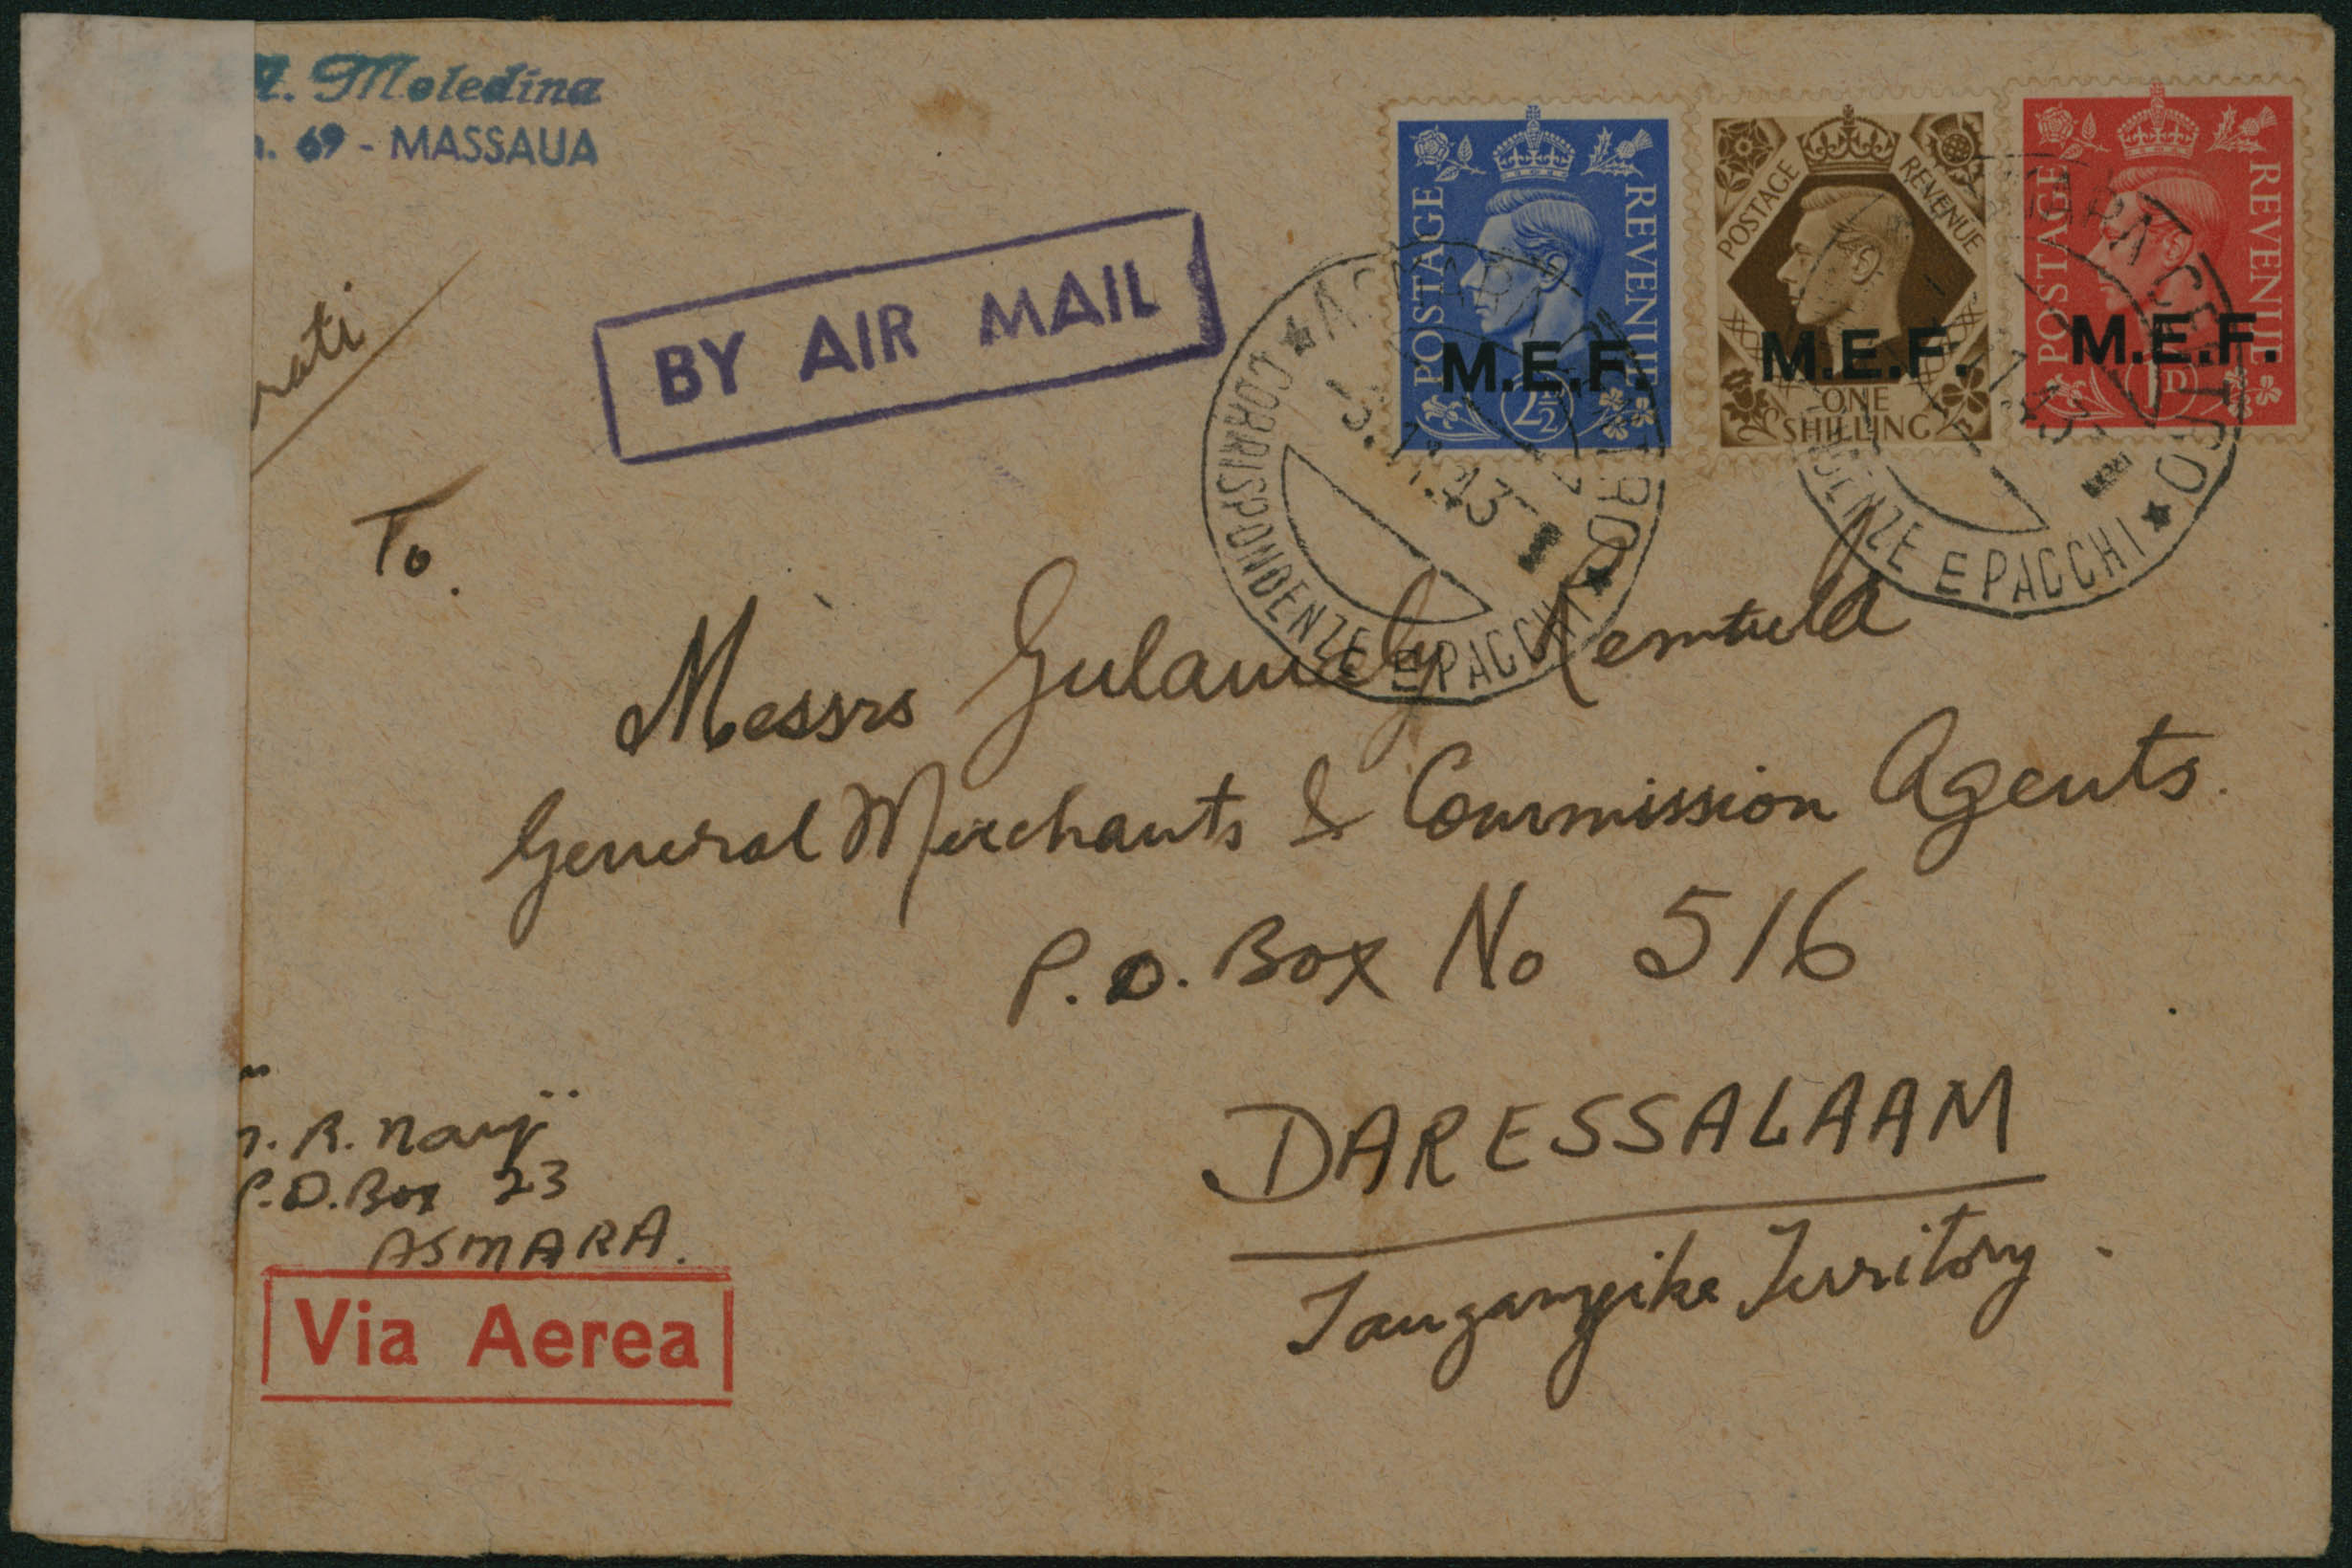 Moledina
69 - MASSAUA
BY AIR MAIL
POSTAGE REVENUE
M.E.F.
2½D
POSTAGE REVENUE
M.E.F.
ONE
SHILLING
POSTAGE REVENUE
M.E.F.
1D
ASMARA CENTRO
CORRISPONDENZE E PACCHI
ASMARA CENTRO
DENZE E PACCHI
To.
Messrs
General Merchants & Commission Agents.
P.O. Box No 516
DARESSALAAM
Tanganyika Territory.
R. Nanji
P.O. Box 23
ASMARA.
Via Aerea